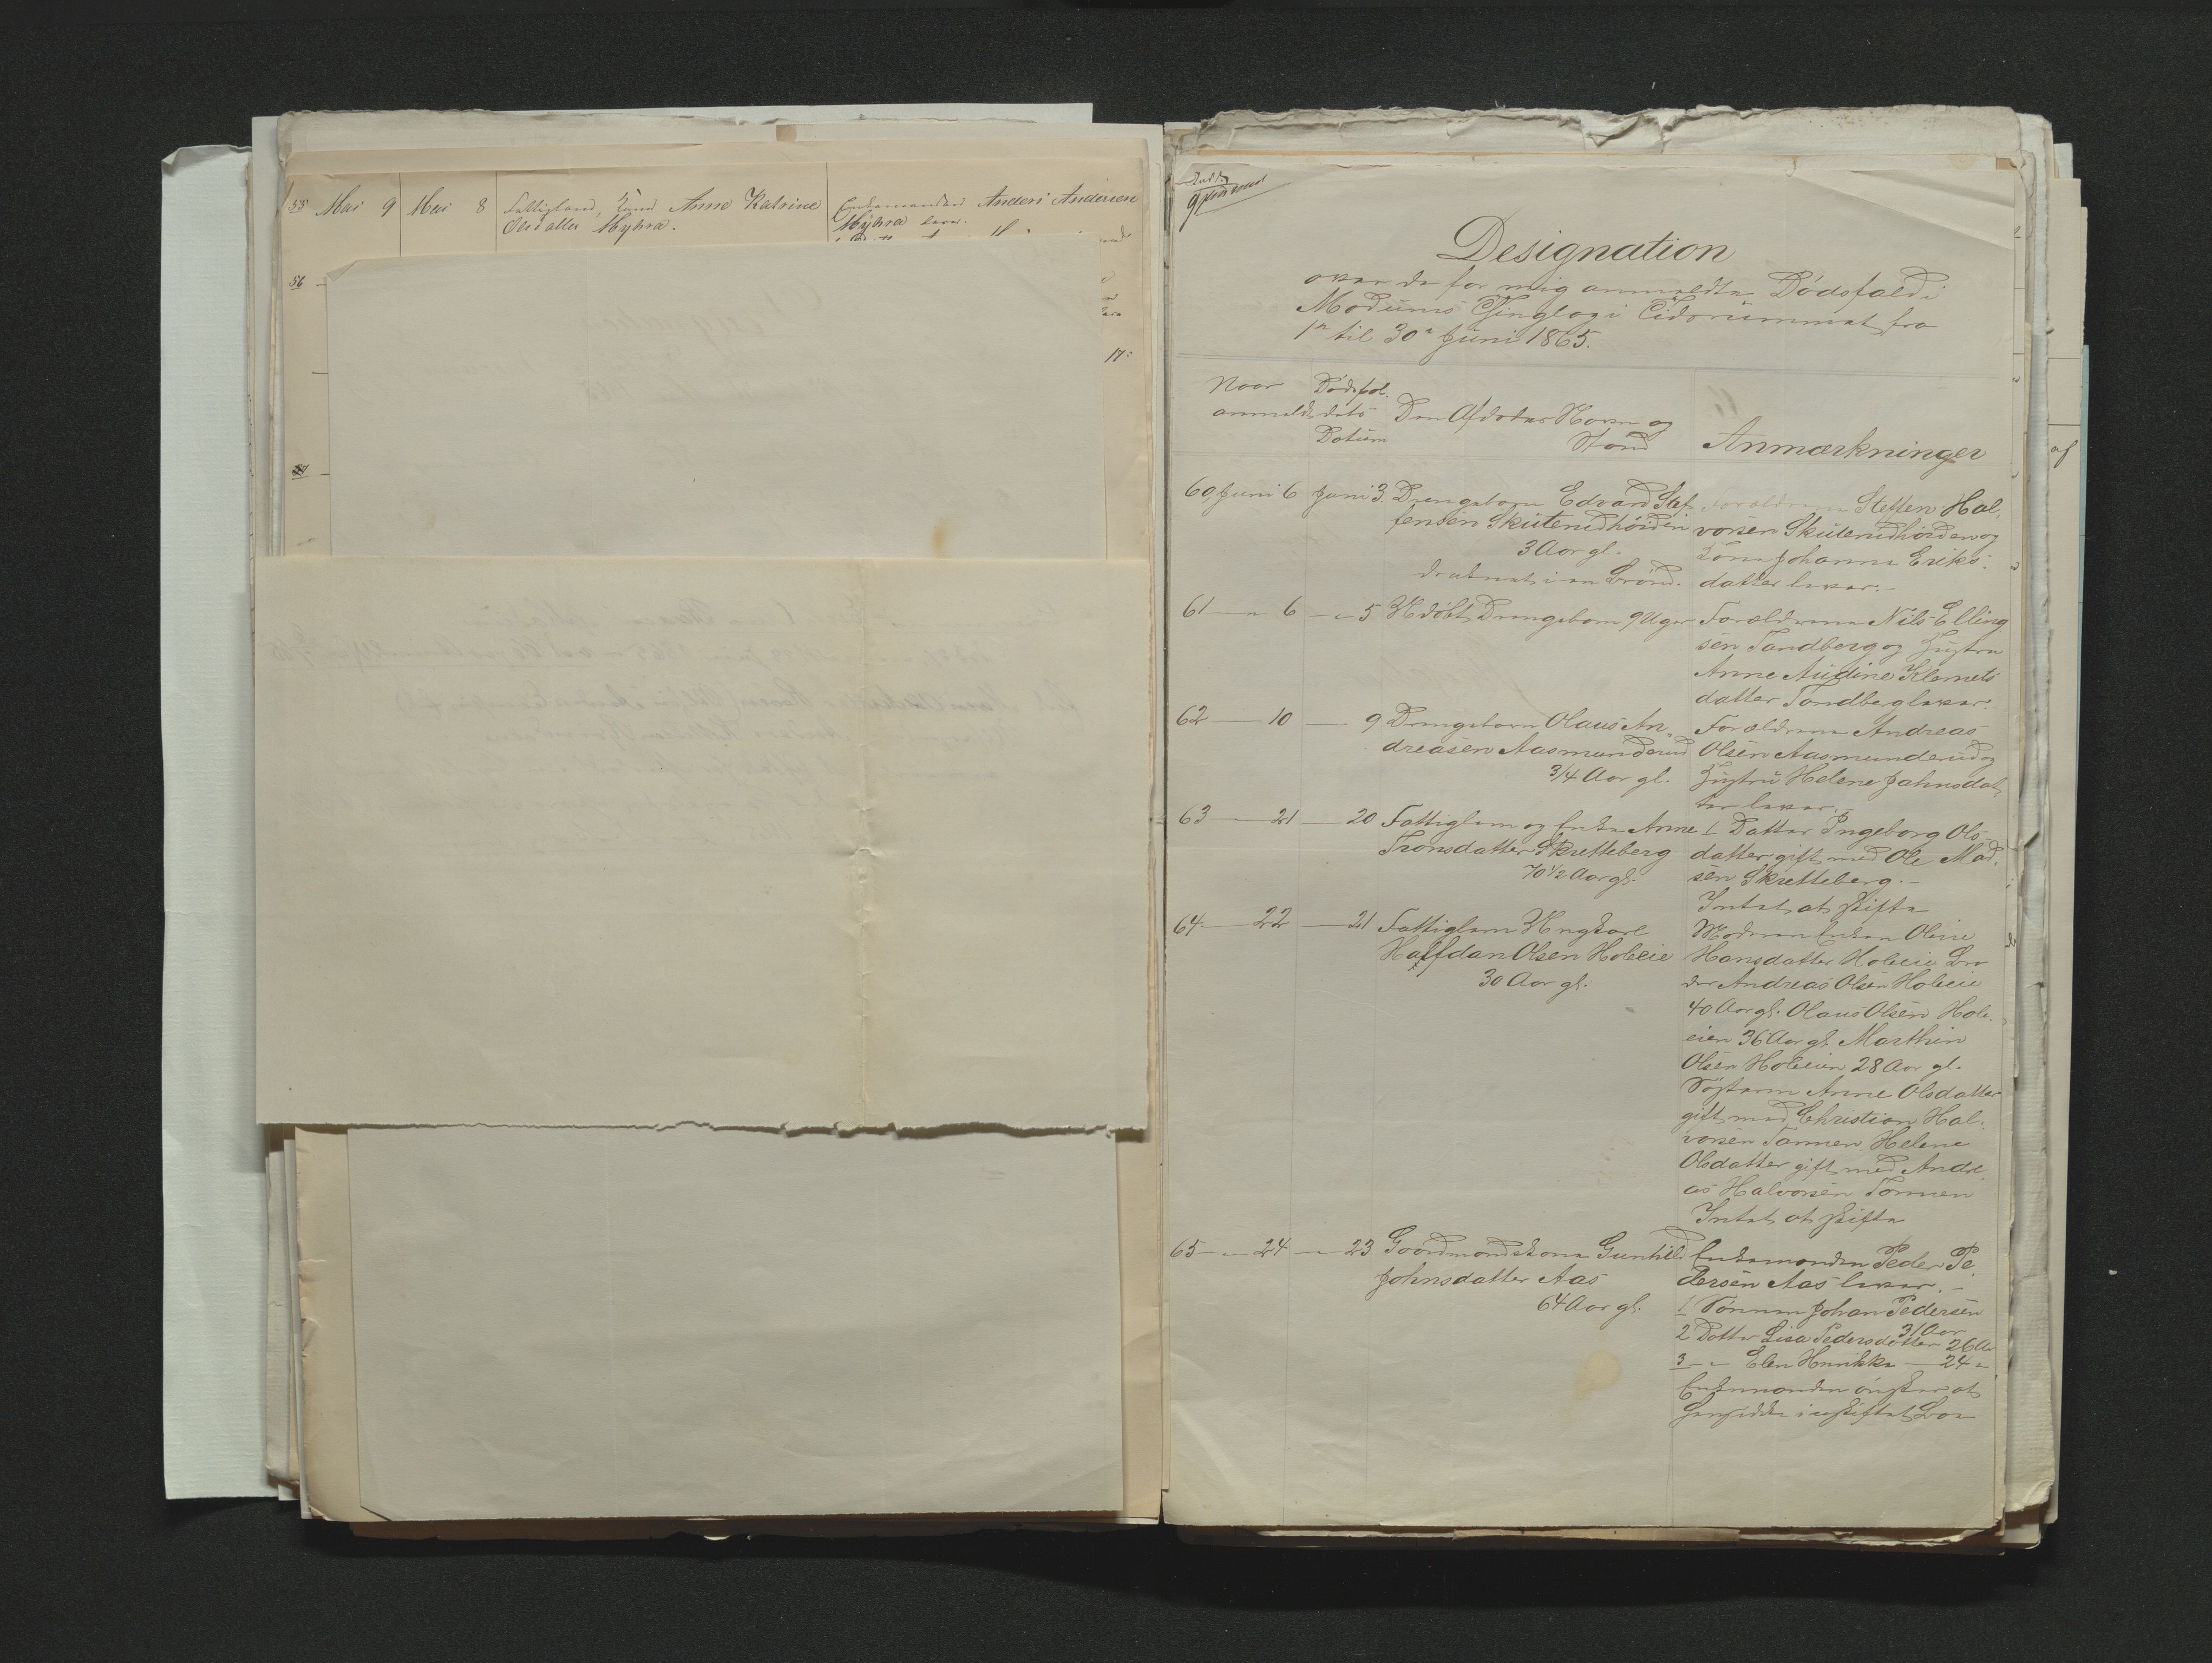 55 Mai 9 Mai 8 Fattiglem, Kone Anne Katrine Enkemanden Anders Andersen
Olsdatter Myhra. Myhra lever.
56
17:
af
Designation
over de for mig anmeldte Dødsfald i
Modums Thinglag i Tidsrummet fra
1te til 30te Juni 1865.
Naar anmeldt
Dødsfaldets Datum
Den Afdødes Navn og
Stand
Anmærkninger
60 Juni 6 Juni 3. Drengebarn Edvard Stef
fensen Skuterudhøiden
3 Aar gl.
druknet i en Brønd.
Forældrene Steffen Hal
vorsen Skuterudhøiden og
Kone Johanne Eriks
datter lever.
61 — " 6 — " 5 Udøbt Drengebarn 9 Uger
Forældrene Nils Elling
sen Tandberg og Hustru
Anne Audine Klemets
datter Tandberg lever.
62 — 10 — 9 Drengebarn Olaus An
dreasen Aasmunderud
3/4 Aar gl.
Forældrene Andreas
Olsen Aasmunderud og
Hustru Helene Jahnsdat
ter lever.
63 — 21 — 20 Fattiglem og Enke Anne
Tronsdatter Skretteberg
70 1/2 Aar gl.
1 Datter Ingeborg Ols
datter gift med Ole Mad
sen Skretteberg.
Intet at skifte
64 — 22 — 21 Fattiglem Ungkarl
Halfdan Olsen Holeeie
30 Aar gl.
Moderen Enken Oline
Hansdatter Holeeie Bro
der Andreas Olsen Holeeie
40 Aar gl. Olaus Olsen Hole
eien 36 Aar gl. Marthin
Olsen Holeeien 28 Aar gl.
Søstrene Anne Olsdatter
gift med Christian Hal
vorsen Helene
Olsdatter gift med Andre
as Halvorsen
Intet at skifte
65 — " 24 — " 23 Gaardmandskone Gunhild
Johnsdatter Aas
64 Aar gl.
Enkemanden Peder Pe
dersen Aas lever.
1 Sønnen Johan Pedersen
31 Aar
2 Datter Lisa Pedersdatter 26 Aar
3 — " Elen Henrikke — 24 "
Enkemanden ønsker at
hensidde i uskiftet Bo